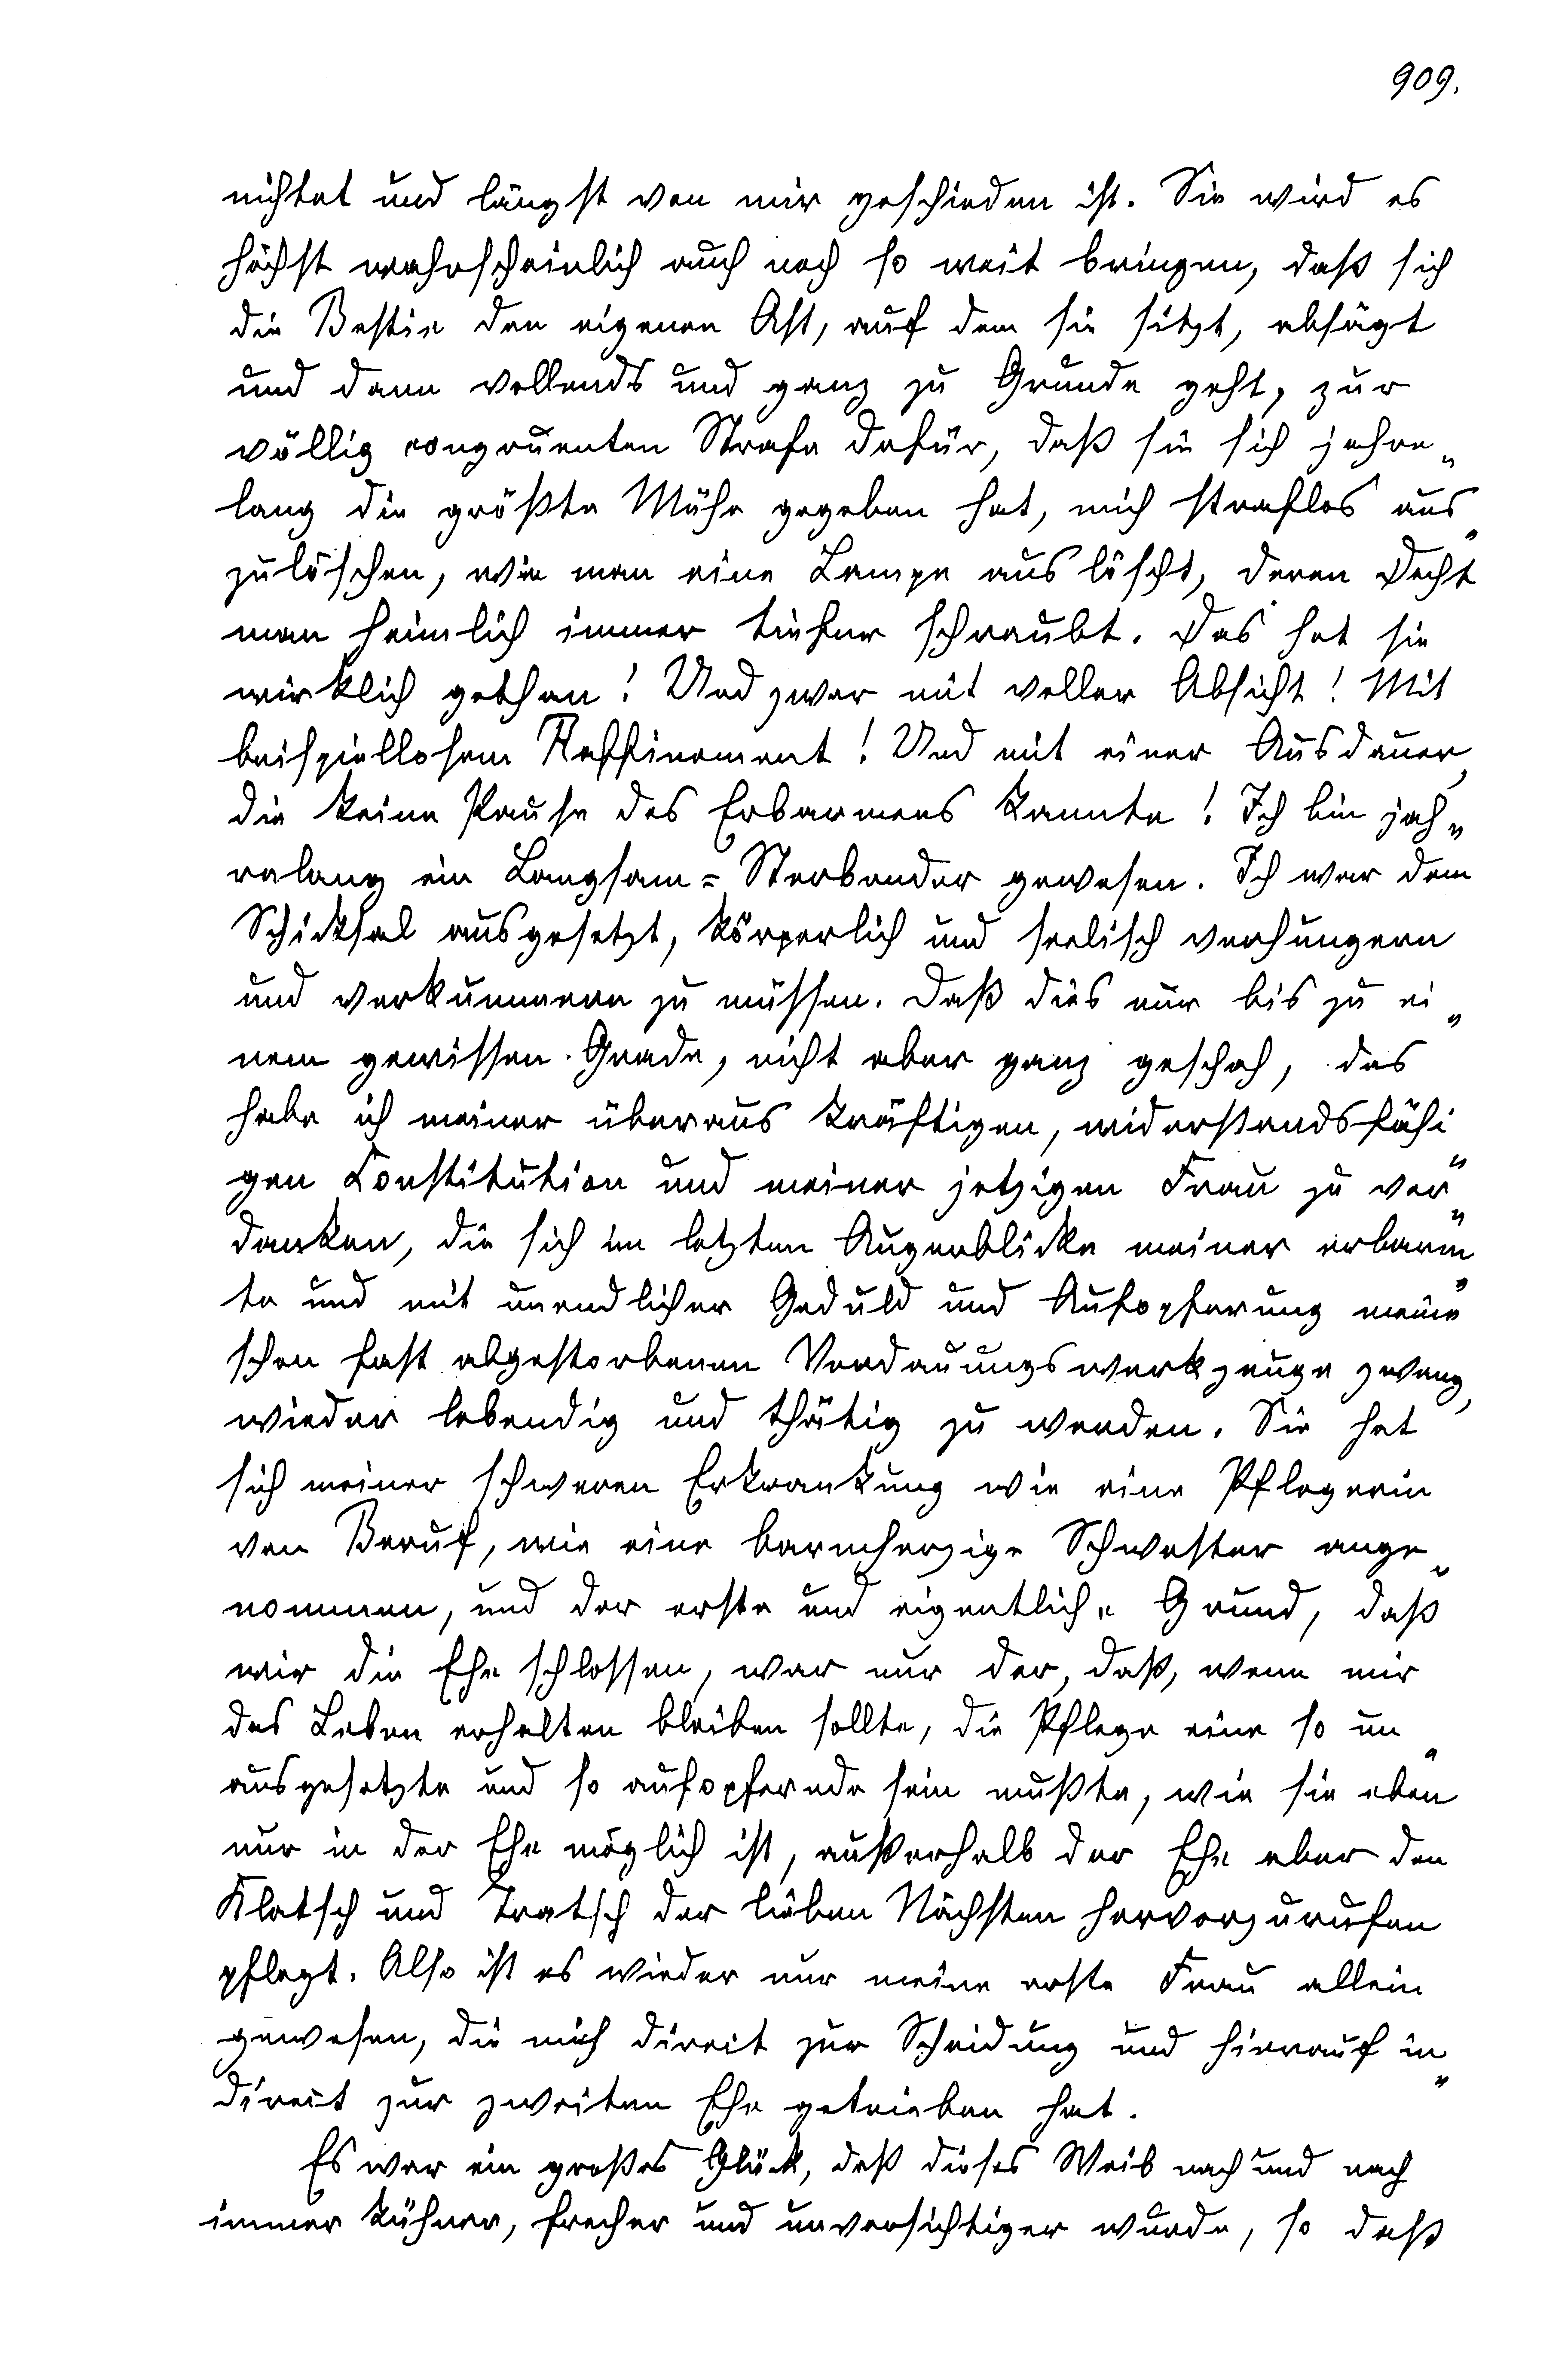 909.
nichtet und längst von mir geschieden ist. Sie wird es
höchst wahrscheinlich auch noch so weit bringen, daß sich
die Bestie den eigenen Ast, auf dem sie sitzt, absägt
und dann vollends und ganz zu Grunde geht, zur
völlig congruenten Strafe dafür, daß sie sich jahre„
lang die größte Mühe gegeben hat, mich straflos aus„
zulöschen, wie man eine Lampe auslöscht, deren Docht
man heimlich immer tiefer schraubt. Das hat sie
wirklich gethan! Und zwar mit voller Absicht! Mit
beispiellosem Raffinement! Und mit einer Ausdauer,
die keine Pause des Erbarmens kannte! Ich bin jah„
relang ein Langsam=Sterbender gewesen. Ich war dem
Schicksal ausgesetzt, körperlich und seelisch verhungern
und verkümmern zu müssen. Daß dies nur bis zu ei„
nem gewissen Grade, nicht aber ganz geschah, das
habe ich meiner überaus kräftigen, widerstandsfähi„
gen Constitution und meiner jetzigen Frau zu ver„
danken, die sich im letzten Augenblicke meiner erbarm„
te und mit unendlicher Geduld und Aufopferung meine
schon fast abgestorbenen Verdauungswerkzeuge zwang,
wieder lebendig und thätig zu werden. Sie hat
sich meiner schweren Erkrankung wie eine Pflegerin
von Beruf, wie eine barmherzige Schwester ange„
nommen, und der erste und eigentliche Grund, daß
wir die Ehe schlossen, war nur der, daß, wenn mir
das Leben erhalten bleiben sollte, die Pflege eine so un„
ausgesetzte und so aufopfernde sein mußte, wie sie eben
nur in der Ehe möglich ist, außerhalb der Ehe aber den
Klatsch und Tratsch der lieben Nächsten hervorzurufen
pflegt. Also ist es wieder nur meine erste Frau allein
gewesen, die mich direct zur Scheidung und hierauf in„
direct zur zweiten Ehe getrieben hat.
Es war ein großes Glück, daß dieses Weib nach und nach
immer kühner, frecher und unvorsichtiger wurde, so daß